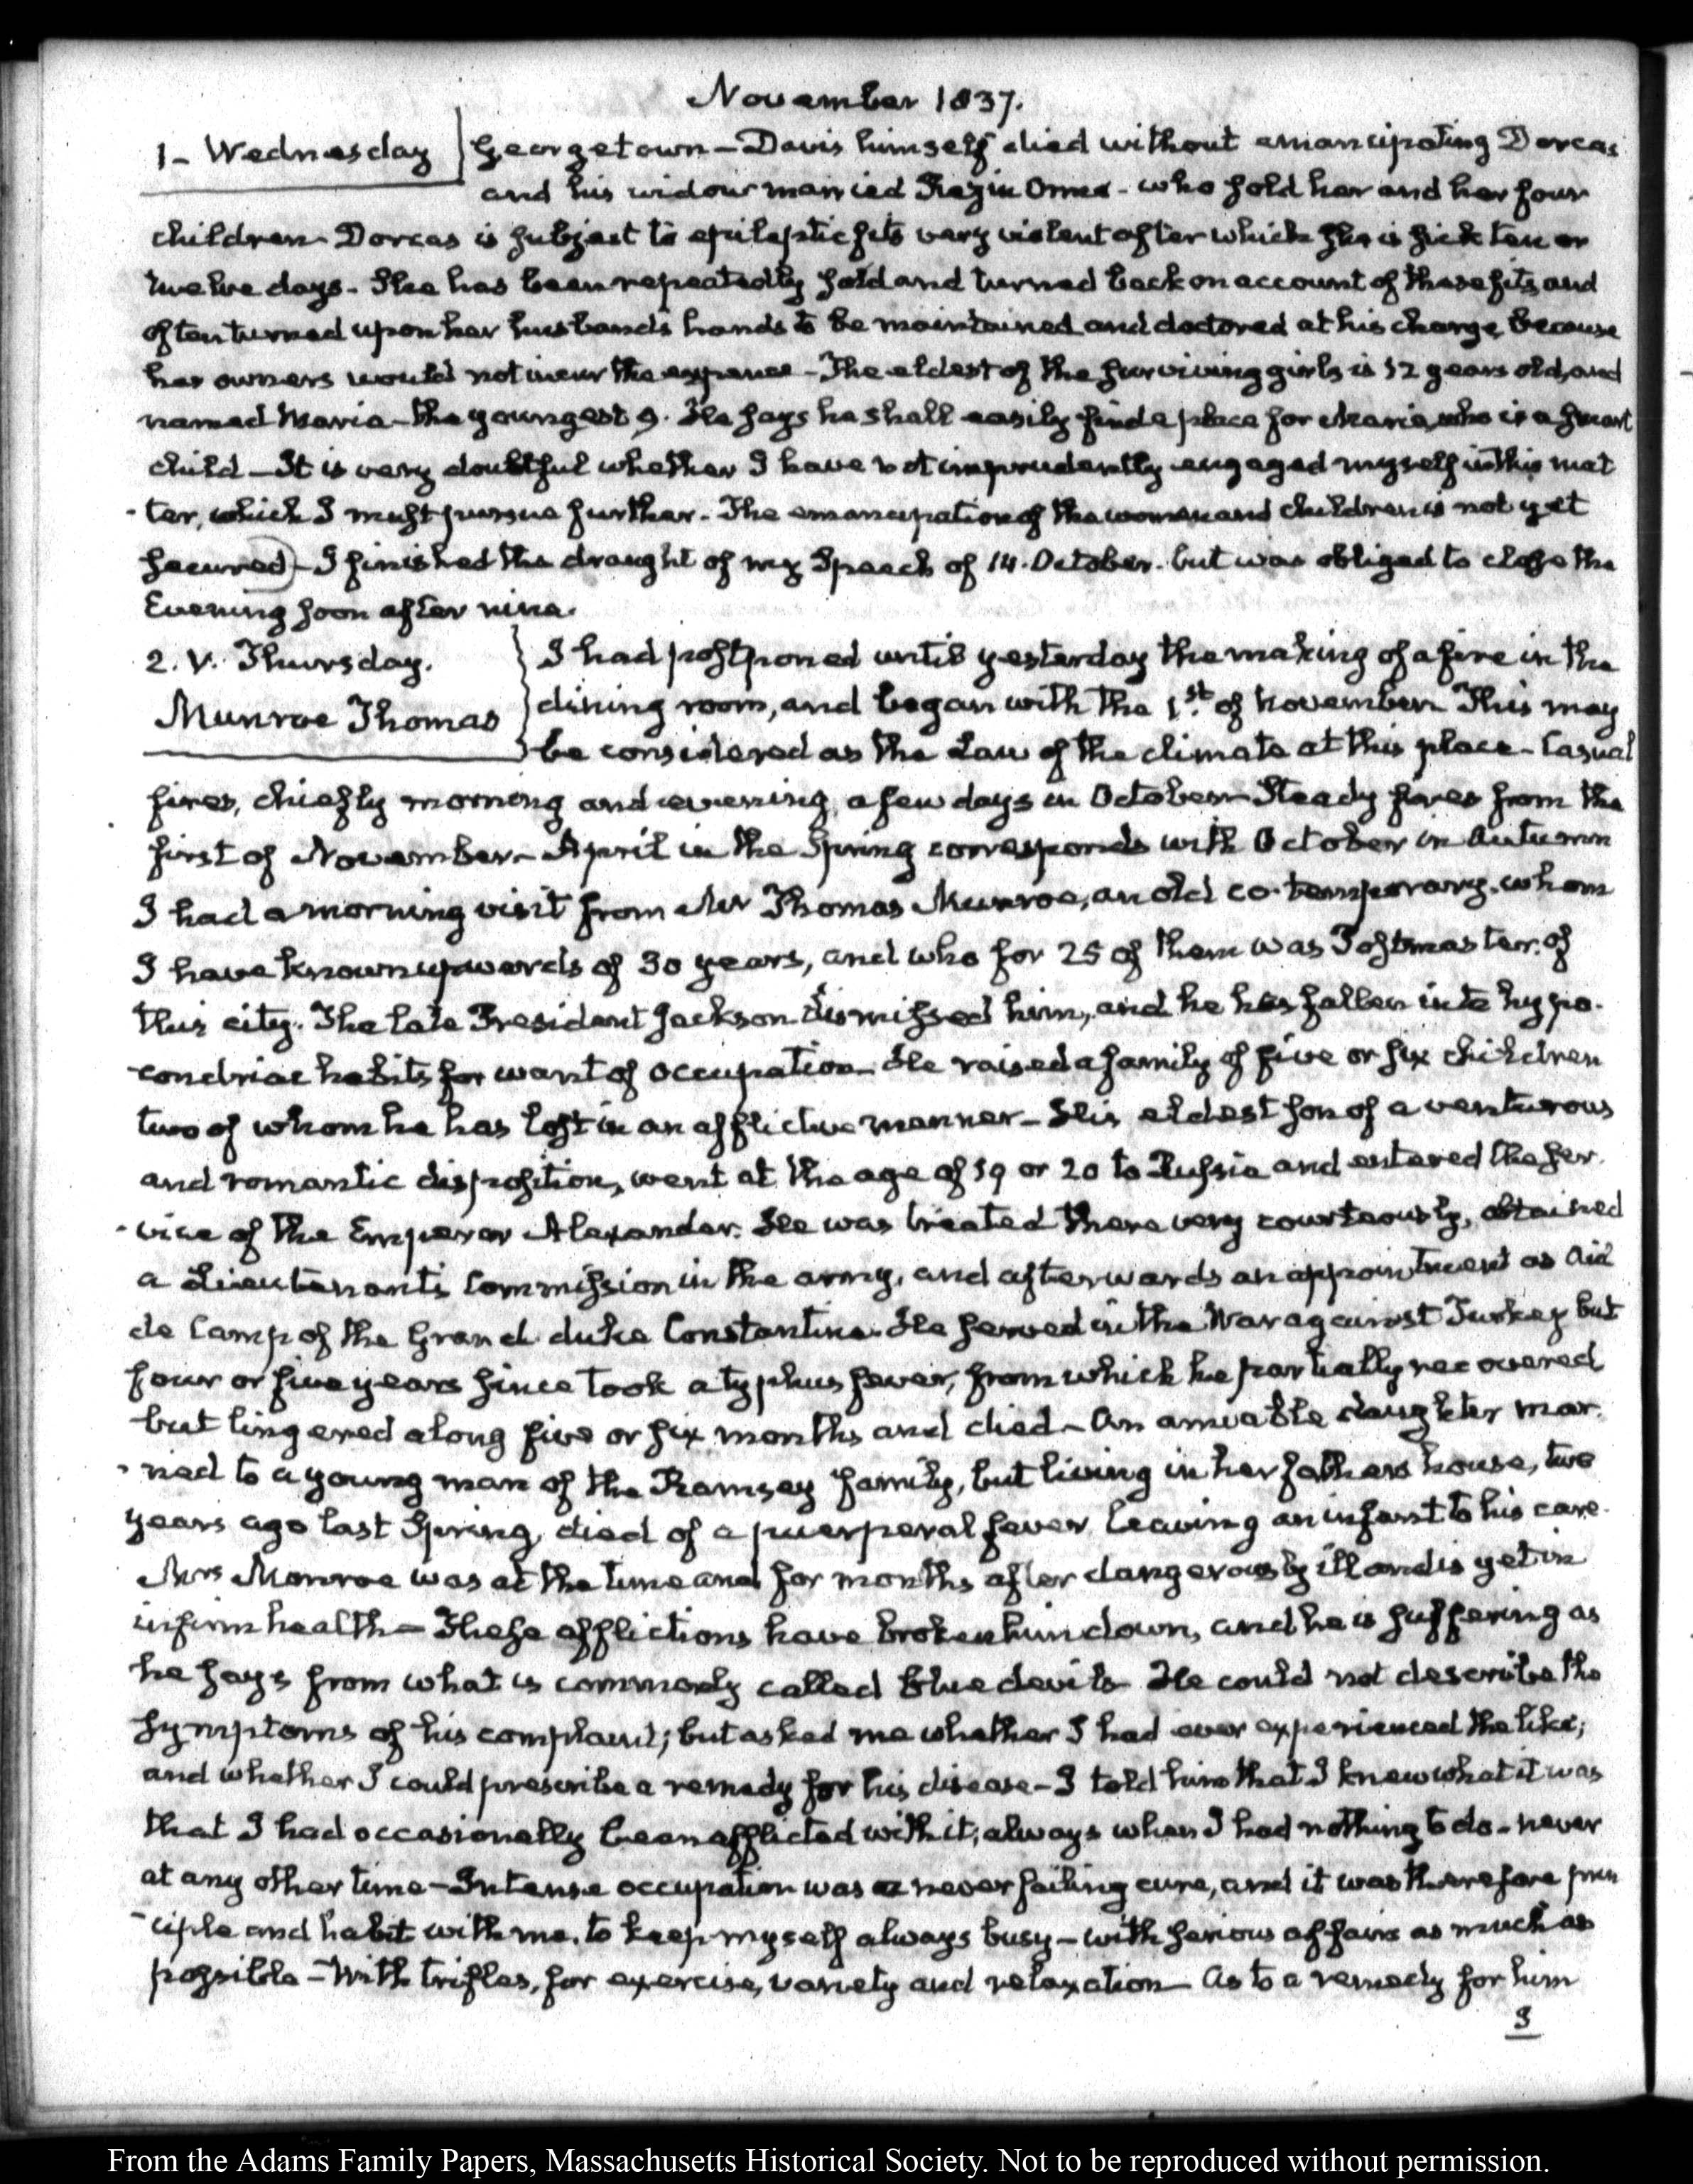 November 1837.
1- Wednesday
Georgetown – Davis himself died without emancipating Dorcas
and his widow married Rezin Orme - who sold her and her four
children - Dorcas is subject to epileptic fits very violent after which she is sick ten or
twelve days - She has been repeatedly sold and turned back on account of these fits, and
often turned upon her husband's hands to be maintained and doctored at his charge, because
her owners would not incur the expence - The eldest of the surviving girls is 12 years old, and
named Maria - the youngest 9. He says he shall easily find a place for Maria, who is a smart
child – It is very doubtful whether I have not imprudently engaged myself in this mat
-ter, which I must pursue further - The emancipation of the woman and children is not yet
secured) - I finished the draught of my Speech of 14. October. but was obliged to close the
Evening soon after nine.
2. V. Thursday.
Munroe Thomas
I had postponed until yesterday the making of a fire in the
dining room, and began with the 1st. of November. This may
be considered as the Law of the climate at this place - Casual
fires, chiefly morning and evening, a few days in October - Steady fires from the
first of November - April in the Spring corresponds with October in Autumn
I had a morning visit from Mr Thomas Munroe, an old co-temporary, whom
I have known upwards of 30 years, and who for 25 of them was Postmaster. of
this city. The late President Jackson dismissed him, and he has fallen into hypo-
-condriac habits for want of occupation - He raised a family of five or six children
two of whom he has lost in an afflictive manner - His eldest son of a venturous
and romantic disposition, went at the age of 19 or 20 to Russia and entered the ser-
-vice of the Emperor Alexander. He was treated there very courteously, obtained
a Lieutenant's Commission in the army, and afterwards an appointment as Aid
de Camp of the Grand duke Constantine. He served in the War against Turkey but
four or five years since took a typhus fever, from which he partially recovered
but lingered along five or six months and died - An amiable daughter mar-
-ried to a young man of the Ramsey family, but living in her fathers house, two
years ago last Spring, died of a puerperal fever leaving an infant to his care.
Mrs Monroe was at the time and for months after dangerously ill and is yet in
infirm health - These afflictions have broken him down, and he is suffering as
he says from what is commonly called blue devils - He could not describe the
symptoms of his complaint; but asked me whether I had ever experienced the like;
and whether I could prescribe a remedy for his disease - I told him that I knew what it was
that I had occasionally been afflicted with it; always when I had nothing to do - never
at any other time - Intense occupation was a never failing cure, and it was therefore prin
-ciple and habit with me, to keep myself always busy - with serious affairs as much as
possible - With trifles, for exercise, variety and relaxation - As to a remedy for him
I
From the Adams Family Papers, Massachusetts Historical Society. Not to be reproduced without permission.